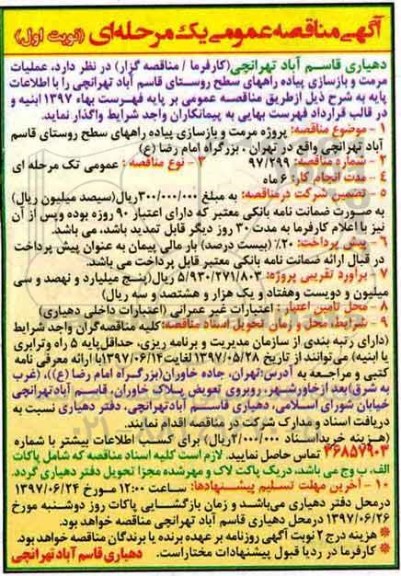 آگهی مناقصه عمومی یک مرحله‌ای (نوبت اول)
دهیاری قاسم آباد تهرانچی(کارفرما / مناقصه گزار) در نظر دارد، عملیات
مرمت و بازسازی پیاده راههای سطح روستای قاسم آباد تهرانچی را با اطلاعات
پایه به شرح ذیل ازطریق مناقصه عمومی بر پایه فهرست بهاء ۱۳۹۷ ابنیه و
در قالب قرارداد فهرست بهایی به پیمانکاران واجد شرایط واگذار نماید.
۱ - موضوع مناقصه: پروژه مرمت و بازسازی پیاده راههای سطح روستای قاسم
آباد تهرانچی واقع در تهران ، بزرگراه امام رضا (ع)
۲ - شماره مناقصه: ۹۷/۲۹۹ ۳ - نوع مناقصه : عمومی تک مرحله ای
۴ - مدت انجام کار: ۶ ماه
۵ - تضمین شرکت درمناقصه: به مبلغ ۳۰۰/۰۰۰/۰۰۰ریال(سیصد میلیون ریال)
به صورت ضمانت نامه بانکی معتبر که دارای اعتبار ۹۰ روزه بوده وپس از آن
نیز با اعلام کارفرما به مدت ۳۰ روز دیگر قابل تمدید باشد، می باشد.
۶ - پیش پرداخت: ۲۰٪ (بیست درصد) بار مالی پیمان به عنوان پیش پرداخت
در قبال ارائه ضمانت نامه بانکی معتبر قابل پرداخت می باشد.
۷ - برآورد تقریبی پروژه: ۵/۹۳۰/۲۷۱/۸۰۳ ریال(پنج میلیارد و نهصد و سی
میلیون و دویست وهفتاد و یک هزار و هشتصد و سه ریال)
۸ - محل تامین اعتبار : اعتبارات غیر عمرانی (اعتبارات داخلی دهیاری)
۹ - شرایط محل وزمان تحویل اسناد مناقصه:کلیه مناقصه‌گران واجد شرایط
(دارای رتبه بندی از سازمان مدیریت و برنامه ریزی، حداقل‌پایه ۵ راه وترابری
یا ابنیه) می‌توانند از تاریخ ۱۳۹۷/۰۵/۲۸ لغایت۱۳۹۷/۰۶/۱۴با ارائه معرفی نامه
کتبی و مراجعه به آدرس:تهران، جاده خاوران(بزرگراه امام رضا (ع))، (غرب
به شرق)بعد ازخاورشهر، روبروی تعویض پلاک خاوران، قاسم آباد تهرانچی
خیابان شورای اسلامی، دهیاری قاسم آبادتهرانچی، دفتر دهیاری نسبت به
دریافت اسناد و مدارک شرکت در مناقصه اقدام نمایند.
(هزینه خریداسناد ۲/۰۰۰/۰۰۰ریال) برای کسب اطلاعات بیشتر با شماره
۳۶۸۵۷۹۰۳ تماس حاصل نمایید. لازم است کلیه اسناد مناقصه که شامل پاکات
الف، ب وج می باشد، دریک پاکت لاک و مهرشده مجزا تحویل دفتر دهیاری گردد.
۱۰ - آخرین مهلت تسلیم پیشنهادها: ساعت ۱۲:۰۰ مورخ ۱۳۹۷/۰۶/۲۴
درمحل دفتر دهیاری می‌باشد و زمان بازگشایی پاکات روز دوشنبه مورخ
۱۳۹۷/۰۶/۲۶ درمحل دهیاری قاسم آباد تهرانچی مناقصه خواهد بود.
* هزینه درج ۲ نوبت آگهی روزنامه بر عهده برنده یا برندگان مناقصه خواهد بود.
* کارفرما در رد یا قبول پیشنهادات مختاراست. دهیاری قاسم آباد تهرانچی